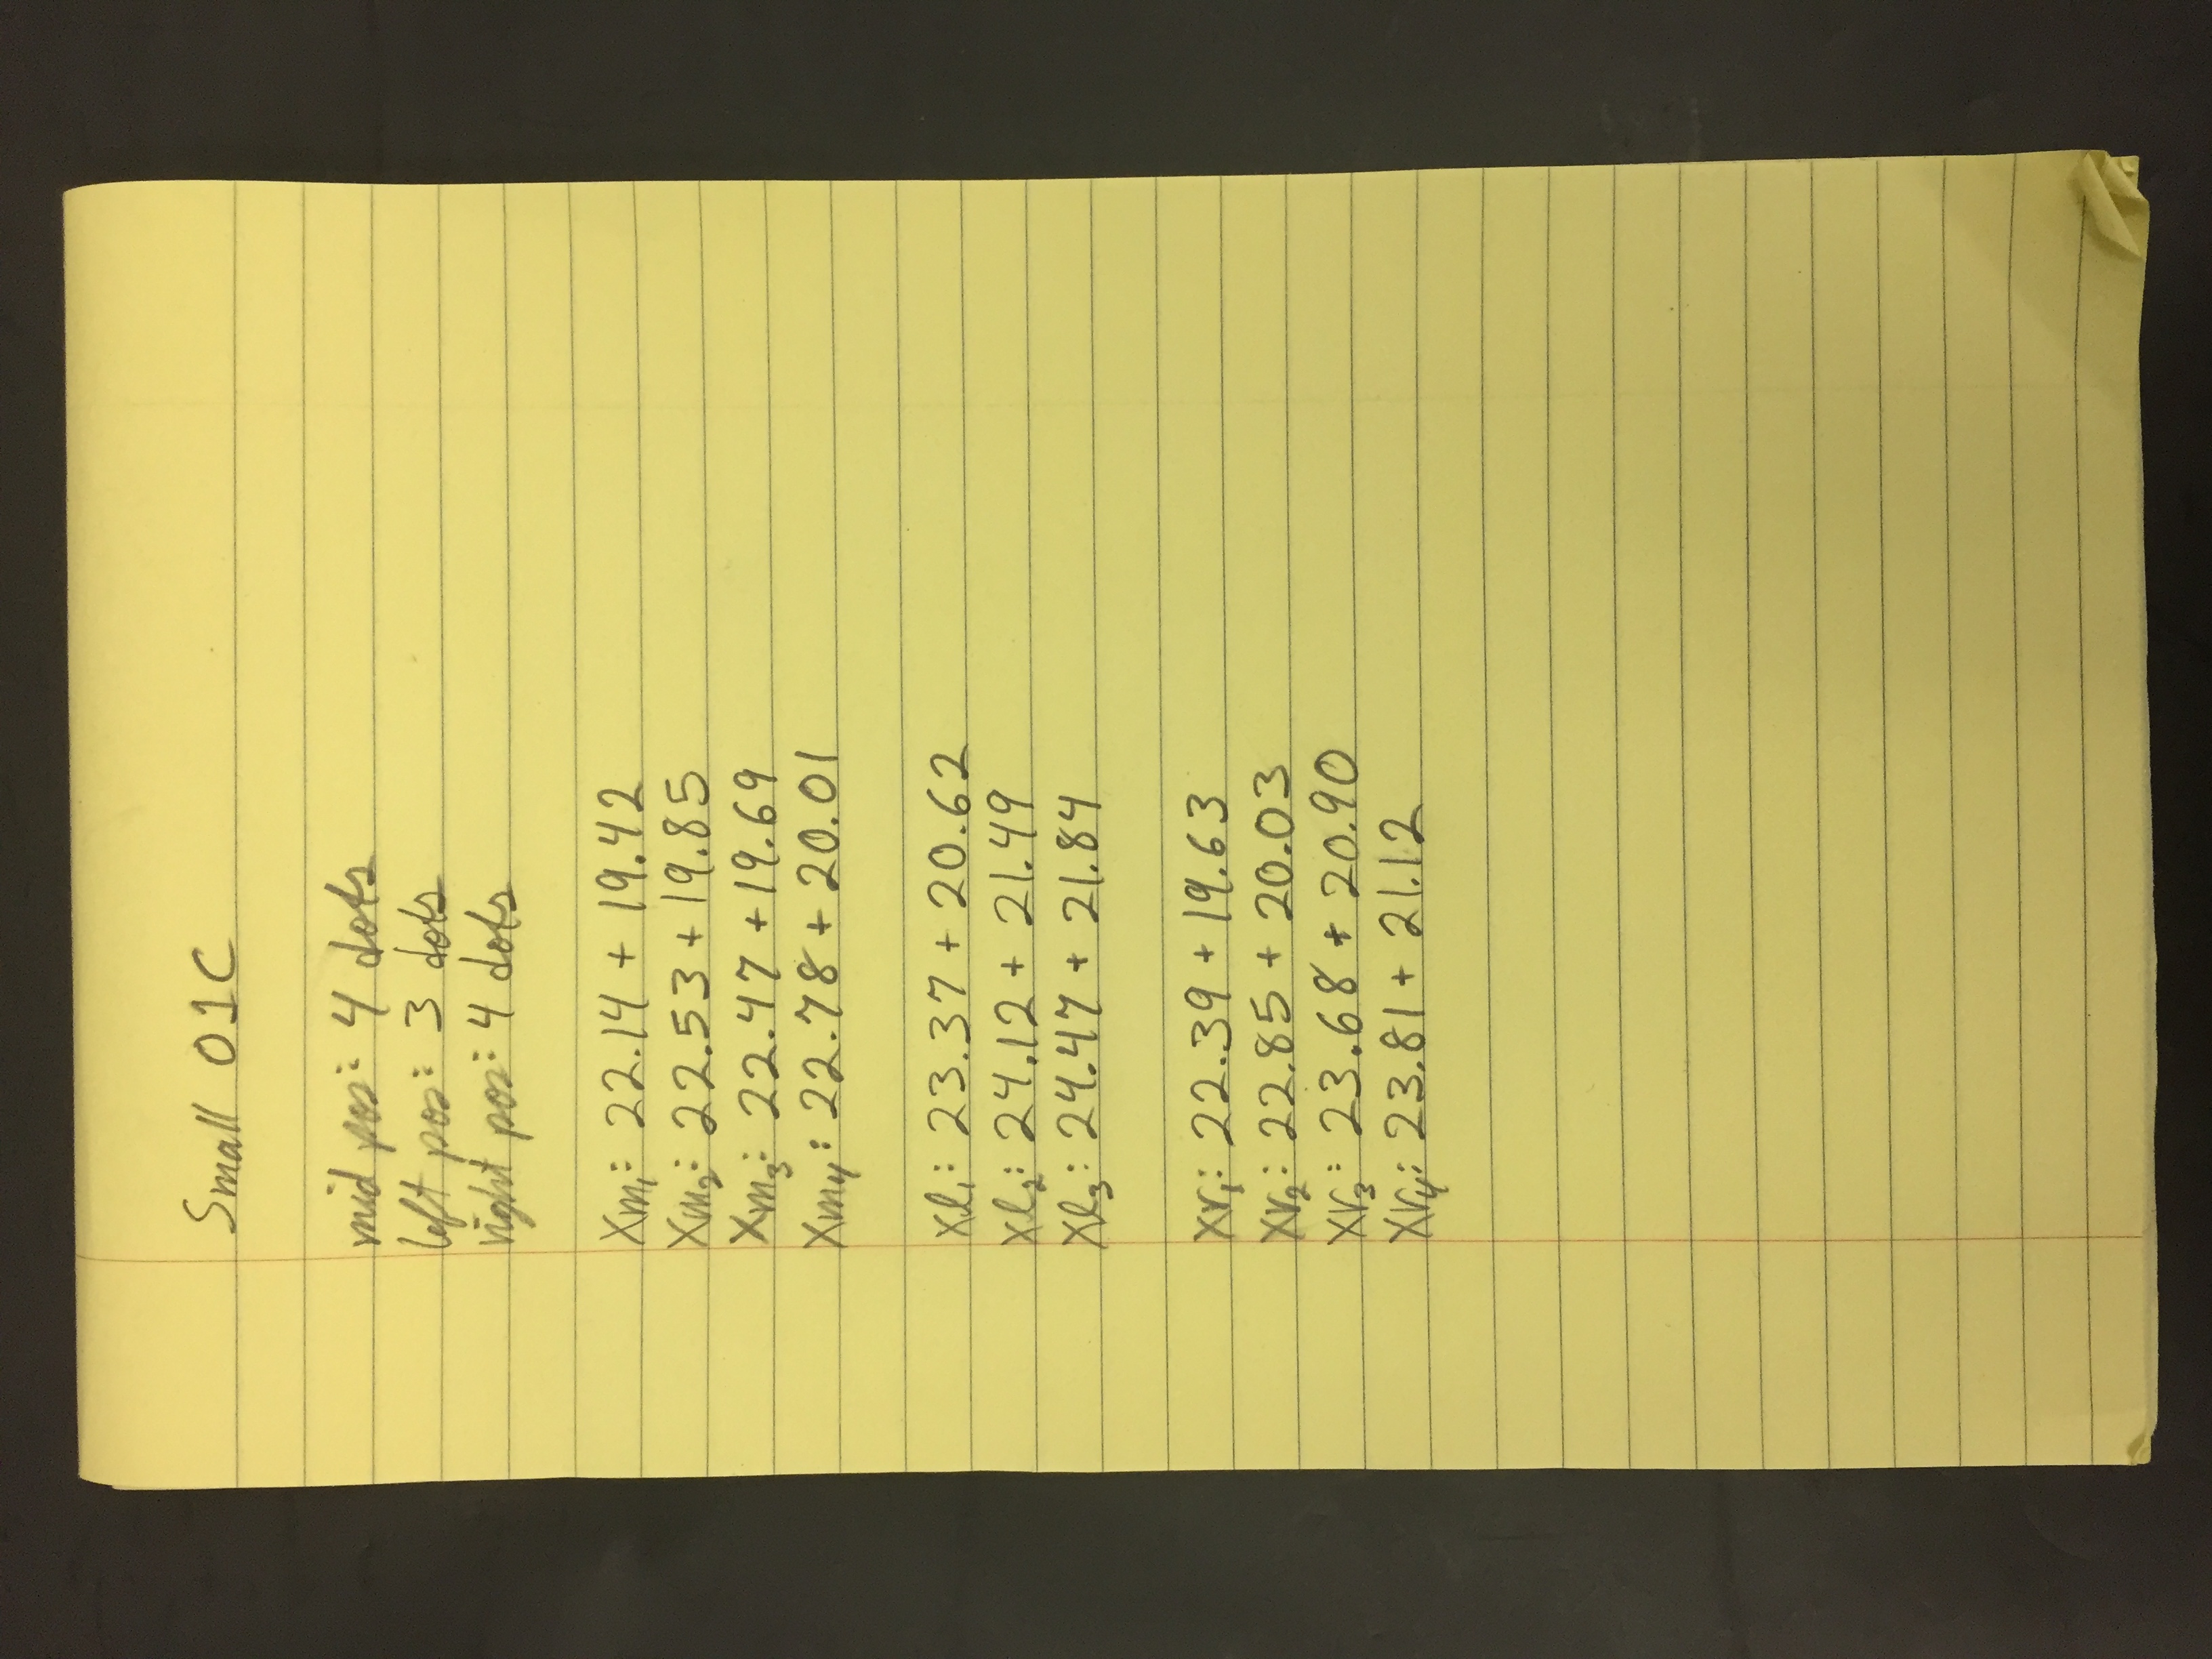 Small 01C
mid pos: 4 dots
left pos: 3 dots
right pos: 4 dots
Xm₁: 22.14 + 19.42
Xm₂: 22.53 + 19.85
Xm₃: 22.47 + 19.69
Xm₄: 22.78 + 20.01
Xl₁: 23.37 + 20.62
Xl₂: 24.12 + 21.49
Xl₃: 24.47 + 21.84
Xr₁: 22.39 + 19.63
Xr₂: 22.85 + 20.03
Xr₃: 23.68 + 20.90
Xr₄: 23.81 + 21.12